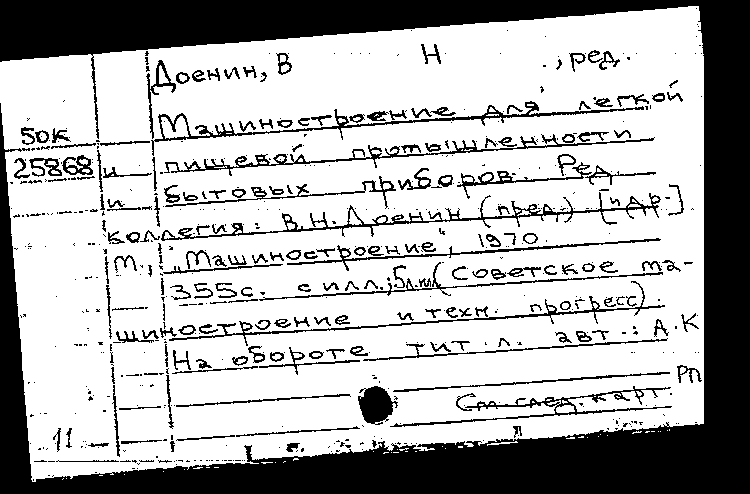 Доенин, В Н , ред.
50к Машиностроение для легкой
25868 и пищевой промышленности
и бытовых приборов. Ред.
коллегия: В.Н. Доенин (пред.) [и др.]
М., "Машиностроение", 1970.
355с. с илл.; 5л.илл (Советское ма-
шиностроение и техн. прогресс).
На обороте тит. л. авт.: А.К
РП
См. след. карт.
11